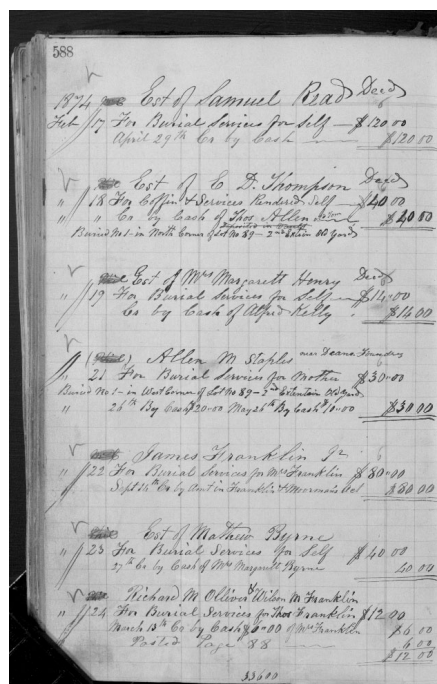 588
1874 Est of Samuel Read Decd
Feb 17 For Burial Services for Self — $120.00
April 29th Cr by Cash — $120.00
Est of E. D. Thompson Decd
" 18 For Coffin & Services Rendered Self — $40.00
" " Cr by Cash of Thos Allen $40.00
Buried No 1 - in North Corner of Lot No 89 - 2nd Old Yard
Est of Mrs Margarett Henry Decd
" 19 For Burial Services for Self — $14.00
Cr by Cash of Alfred Kelly $14.00
Allen M Staples near Deane Foundry
" 21 For Burial Services for Mother $30.00
Buried No 1 - in West Corner of Lot No 89 - 2nd Extention Old Yard
" 26th By Cash $20.00 May 26th By Cash $10.00 $30.00
James Franklin Jr
" 22 For Burial Services for Mrs Franklin $80.00
Sept 24th Cr by Amt in Franklin & Moormans Act $80.00
Est of Mathew Byrne
" 23 For Burial Services for Self $40.00
27th Cr by Cash of Mrs Byrne 40.00
Richard M Olliver & Wilson M Franklin
" 24 For Burial Services for Thos Franklin $12.00
March 13th Cr by Cash $6.00 of Mrs Franklin $6.00
Posted Page 88 6.00
$12.00
33600